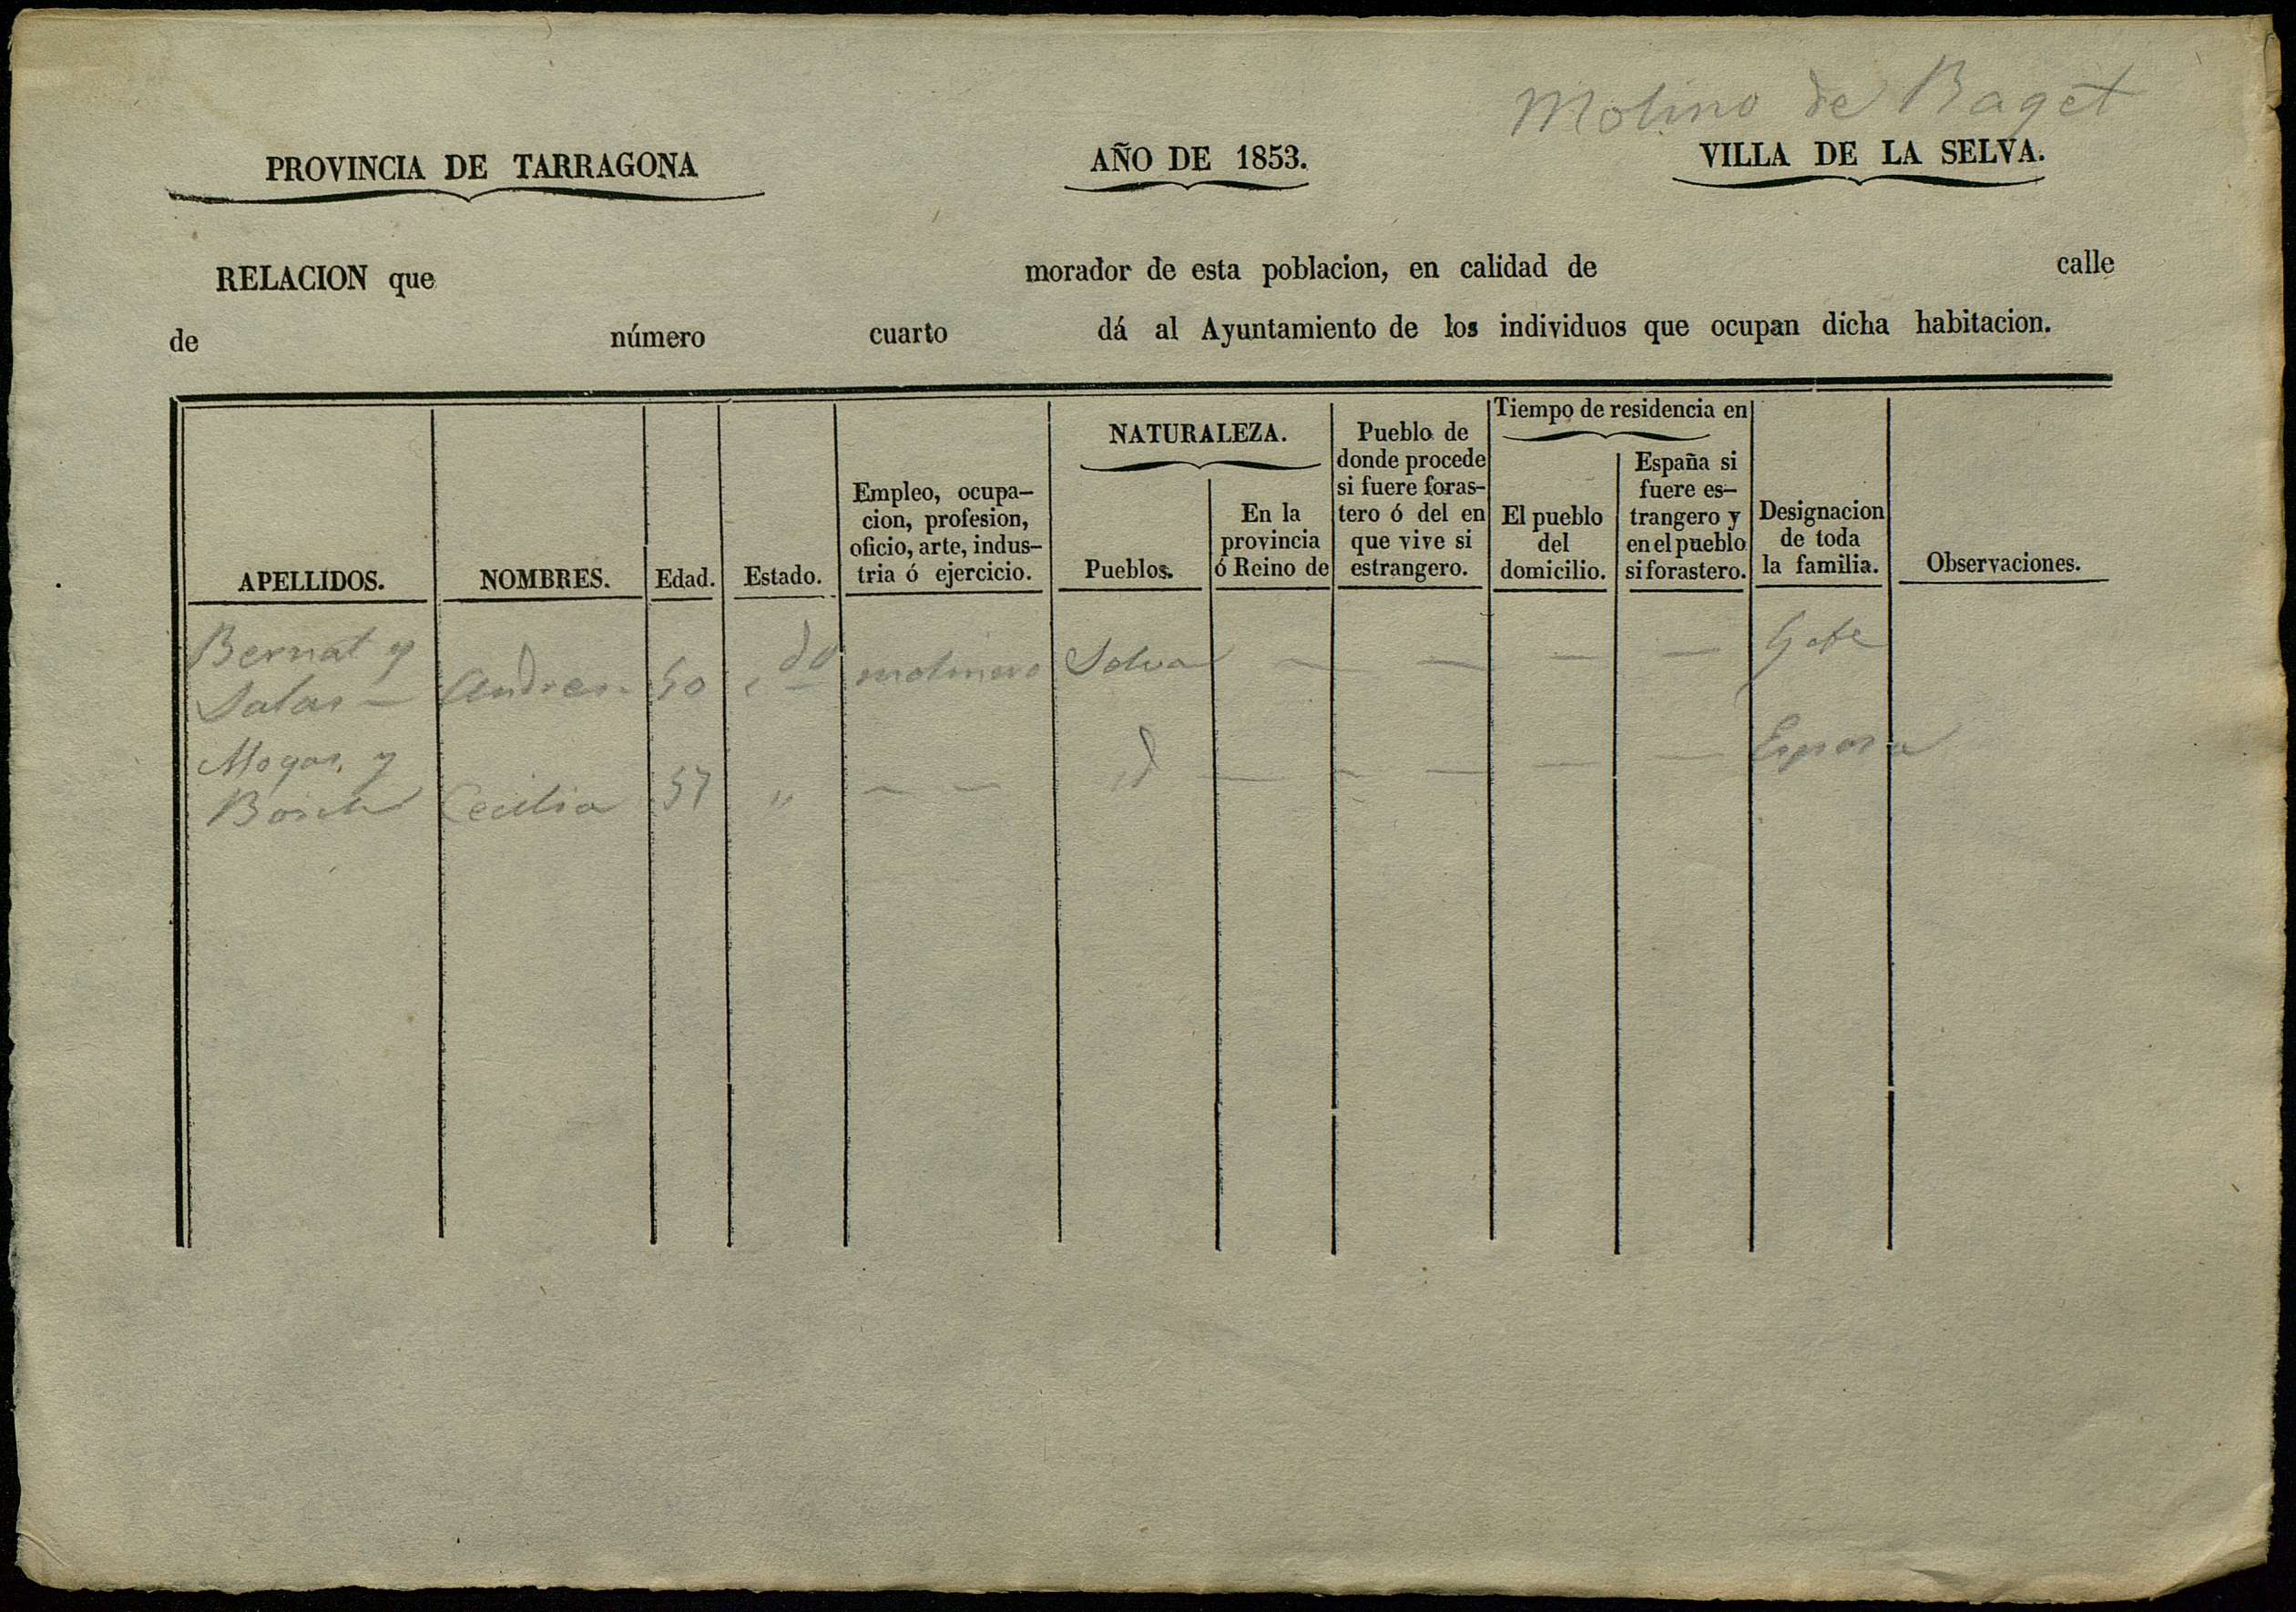 Molino de Baget
PROVINCIA DE TARRAGONA AÑO DE 1853. VILLA DE LA SELVA.
RELACION que morador de esta poblacion, en calidad de calle
de número cuarto dá al Ayuntamiento de los individuos que ocupan dicha habitacion.
APELLIDOS.
NOMBRES.
Edad.
Estado.
Empleo, ocupa-
cion, profesion,
oficio, arte, indus-
tria ó ejercicio.
NATURALEZA.
Pueblos.
En la
provincia
ó Reino de
Pueblo de
donde procede
si fuere foras-
tero ó del en
que vive si
estrangero.
Tiempo de residencia en
El pueblo
del
domicilio.
España si
fuere es-
trangero y
en el pueblo
si forastero.
Designacion
de toda
la familia.
Observaciones.
Bernat y
Salas — Andres 50 c.do molinero Selva — — — — Gefe
Mogas y
Bosch Cecilia 57 " — — id — — — — — Esposa